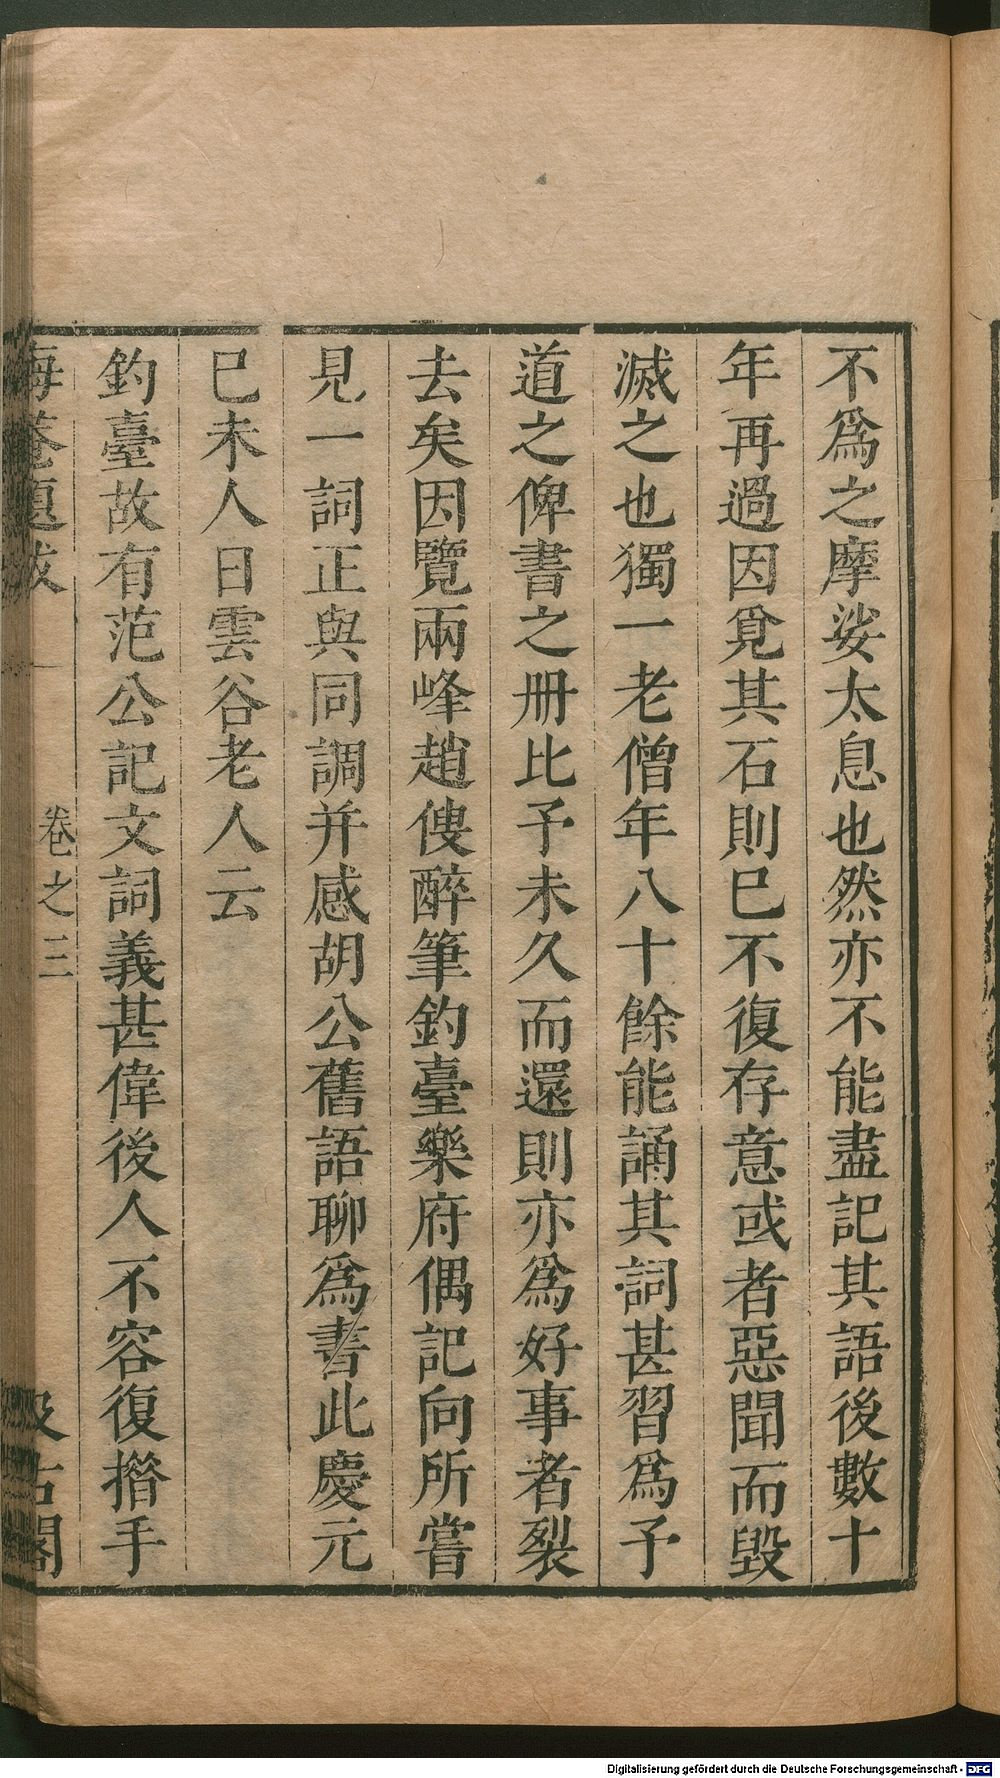 不爲之摩娑太息也然亦不能盡記其語後數十
年再過因覓其石則已不復存意或者惡聞而毀
滅之也獨一老僧年八十餘能誦其詞甚習爲予
道之俾書之册比予未久而還則亦爲好事者裂
去矣因覽兩峰趙傁醉筆釣臺樂府偶記向所嘗
見一詞正與同調并感胡公舊語聊爲書此慶元
巳未人日雲谷老人云
釣臺故有范公記文詞義甚偉後人不容復措手
晦菴題跋 卷之三 汲古閣
Digitalisierung gefördert durch die Deutsche Forschungsgemeinschaft - DFG